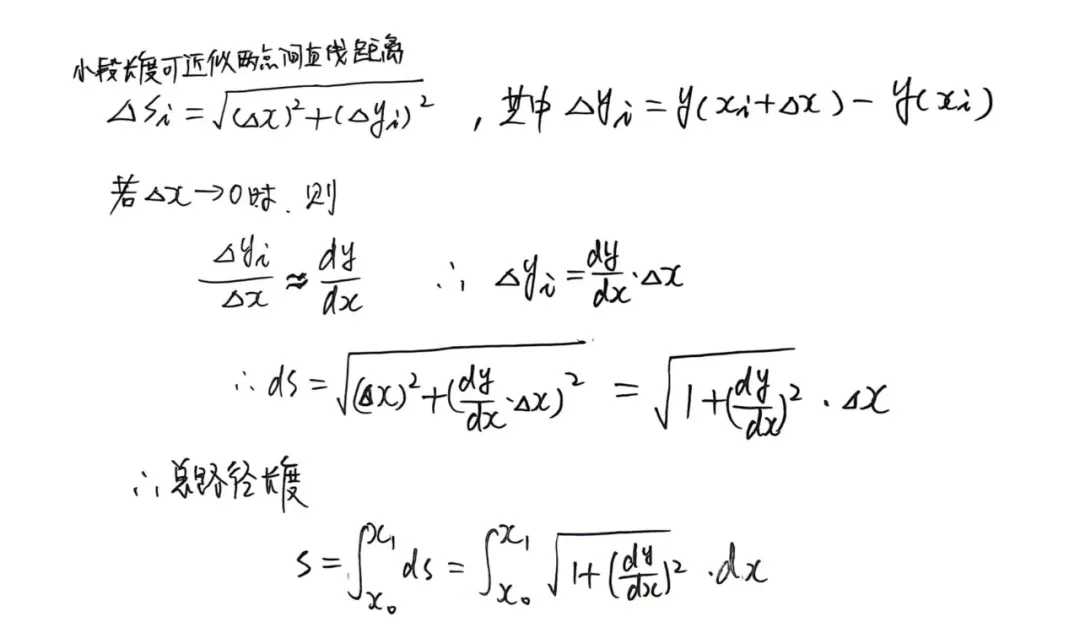 小段长度可近似两点间直线距离
Δsᵢ = √((Δx)² + (Δyᵢ)²) , 其中 Δyᵢ = y(xᵢ+Δx) − y(xᵢ)
若Δx→0时. 则
Δyᵢ/Δx ≈ dy/dx ∴ Δyᵢ = dy/dx · Δx
∴ ds = √((Δx)² + (dy/dx · Δx)²) = √(1 + (dy/dx)²) · Δx
∴ 总路径长度
s = ∫_{x₀}^{x₁} ds = ∫_{x₀}^{x₁} √(1 + (dy/dx)²) · dx